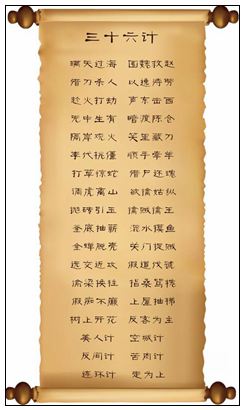 三十六计
瞒天过海 围魏救赵
借刀杀人 以逸待劳
趁火打劫 声东击西
无中生有 暗度陈仓
隔岸观火 笑里藏刀
李代桃僵 顺手牵羊
打草惊蛇 借尸还魂
调虎离山 欲擒姑纵
抛砖引玉 擒贼擒王
釜底抽薪 混水摸鱼
金蝉脱壳 关门捉贼
远交近攻 假道伐虢
偷梁换柱 指桑骂槐
假痴不癫 上屋抽梯
树上开花 反客为主
美人计 空城计
反间计 苦肉计
连环计 走为上